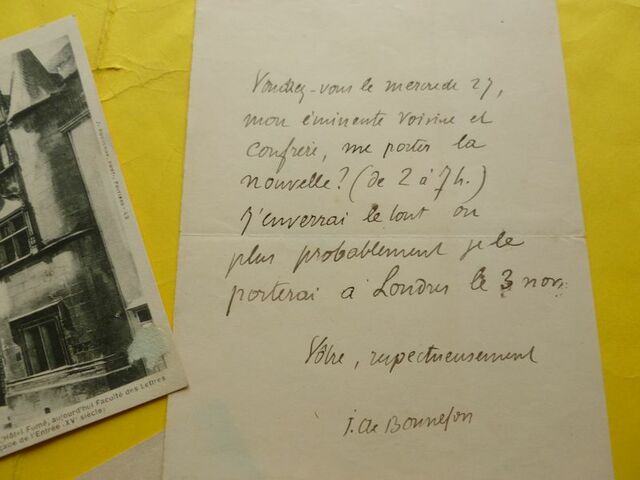 Voudrez-vous le mercredi 27,
mon éminente voisine et
confrère, me porter la
nouvelle? (de 2 à 7h.)
J'enverrai le tout ou
plus probablement je le
porterai à Londres le 3 nov.
Vôtre, respectueusement
J. de Bonnefon
L'Hôtel Fumé, aujourd'hui Faculté des Lettres
de l'Entrée (XVe siècle)